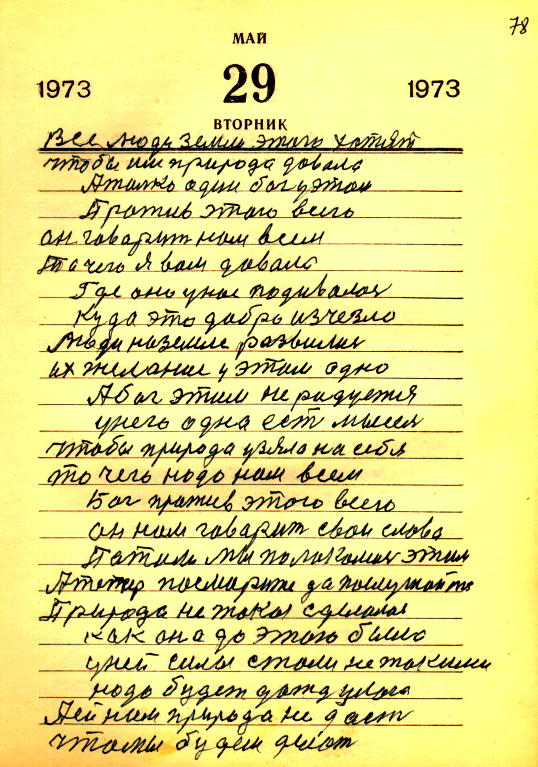 78
МАЙ
1973 29 1973
ВТОРНИК
Все люди земли этого хотят
чтобы им природа довала
А толко один бог у этом
Против этого всего
он говорит нам всем
То чего я вам довала
Где оно у нас подивалося
Куда это добро изчезло
Люди на земле развилися
их желание у этом одно
А бог этим не радуется
у него одна ест мысел
чтобы природа узяла на себя
то чего надо нам всем
Бог против этого всего
он нам говорит свои слова
мы полакомился этим
А тепер посмотрите да послушайте
Природа не такая сделалас
как она до этого было
у ней силы стали не такими
надо будет дожд улага
А ей нам природа не даст
что мы будем делат